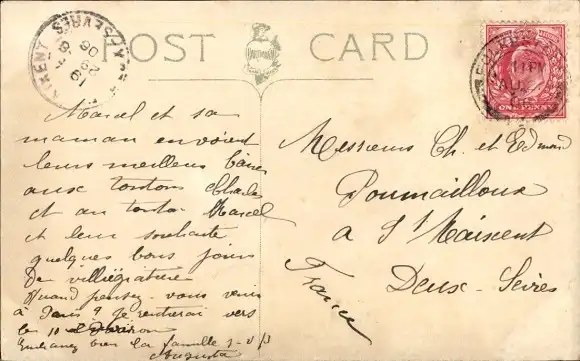 POST CARD
FOLKESTONE
ONE PENNY
Marcel et sa
maman envoient
leurs meilleurs baisers
aux tontons Charles
et au tonton Marcel
et leur souhaite
quelques bons jours
de villégiature
Quand pensez-vous venir
à Paris ? Je rentrerai vers
le 10
bien la famille
Augusta
Messieurs Ch. et Edmond
Poumailloux
à St Maixent
Deux-Sèvres
France